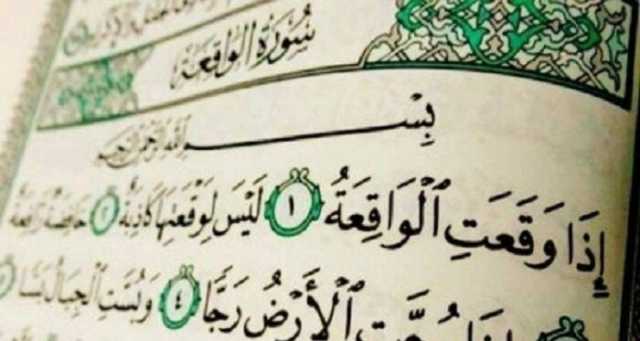 سُورَةُ الوَاقِعَةِ
بِسْمِ اللَّهِ الرَّحْمَٰنِ الرَّحِيمِ
إِذَا وَقَعَتِ ٱلْوَاقِعَةُ ١ لَيْسَ لِوَقْعَتِهَا كَاذِبَةٌ ٢ خَافِضَةٌ رَّافِعَةٌ
رُجَّتِ ٱلْأَرْضُ رَجًّا ٤ وَبُسَّتِ ٱلْجِبَالُ بَسًّا